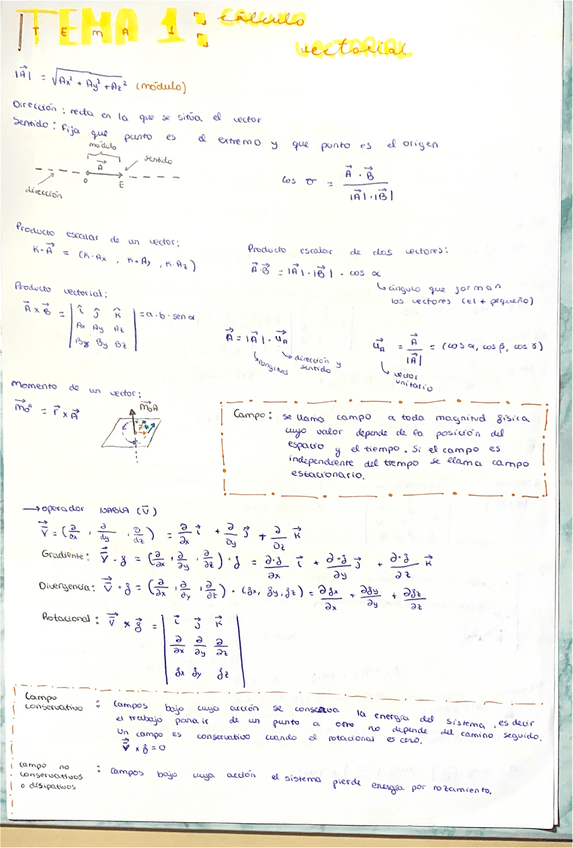 TEMA 1: cálculo
vectorial
|A⃗| = √Ax² + Ay² + Az² (módulo)
Dirección: recta en la que se sitúa el vector
Sentido: Fija que punto es el extremo y que punto es el origen
módulo
A⃗
sentido
O E
dirección
cos σ = A⃗ · B⃗ / |A⃗| · |B⃗|
Producto escalar de un vector:
K · A⃗ = (K·Ax , K·Ay , K·Az)
Producto escalar de dos vectores:
A⃗·B⃗ = |A⃗| · |B⃗| · cos α
ángulo que forman
los vectores (el + pequeño)
Producto vectorial:
A⃗ x B⃗ = | i⃗ j⃗ k⃗ | = a · b · sen α
Ax Ay Az
Bx By Bz
A⃗ = |A⃗| · u⃗A
longitud
dirección y
sentido
u⃗A = A⃗ / |A⃗| = (cos α, cos β, cos γ)
vector
unitario
Momento de un vector:
M⃗o = r⃗ x A⃗
M⃗oA
Campo: se llama campo a toda magnitud física
cuyo valor depende de la posición del
espacio y el tiempo. Si el campo es
independiente del tiempo se llama campo
estacionario.
→ operador NABLA (∇)
∇⃗ = (∂/∂x , ∂/∂y , ∂/∂z) = ∂/∂x i⃗ + ∂/∂y j⃗ + ∂/∂z k⃗
Gradiente: ∇⃗ · f = (∂/∂x , ∂/∂y , ∂/∂z) · f = ∂·f/∂x i⃗ + ∂·f/∂y j⃗ + ∂·f/∂z k⃗
Divergencia: ∇⃗ · f = (∂/∂x , ∂/∂y , ∂/∂z) · (fx, fy, fz) = ∂fx/∂x + ∂fy/∂y + ∂fz/∂z
Rotacional: ∇⃗ x f⃗ = | i⃗ j⃗ k⃗ |
∂/∂x ∂/∂y ∂/∂z
fx fy fz
Campo
conservativo : campos bajo cuya acción se conserva la energía del sistema, es decir
el trabajo para ir de un punto a otro no depende del camino seguido.
Un campo es conservativo cuando el rotacional es cero.
∇⃗ x f = 0
campo no
conservativos
o disipativos : campos bajo cuya acción el sistema pierde energía por rozamiento.